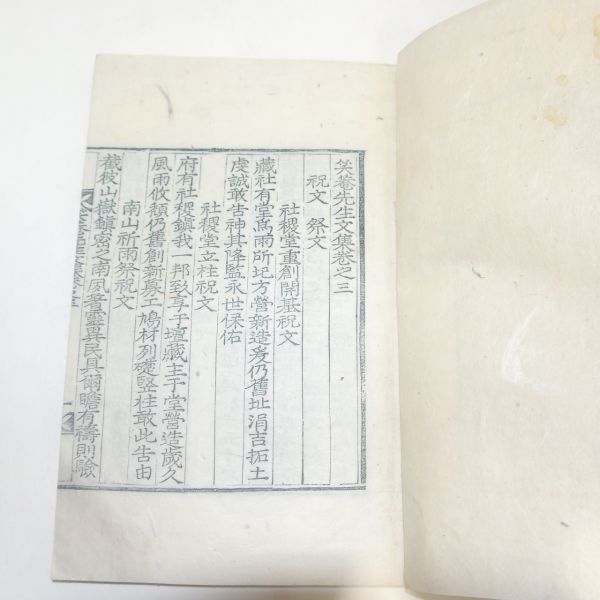 笑菴先生文集卷之三
祝文 祭文
社稷堂重創開基祝文
藏社有堂風雨所圮方營新造爰仍舊址涓吉拓土
虔誠敢告神其降監永世保佑
社稷堂立柱祝文
府有社稷鎭我一邦致享于壇藏主于堂營造歲久
風雨攸頹仍舊創新與工鳩材列礎竪柱敢此告由
南山祈雨祭祝文
截彼山嶽鎭密之南夙著靈異民具爾瞻有禱則驗